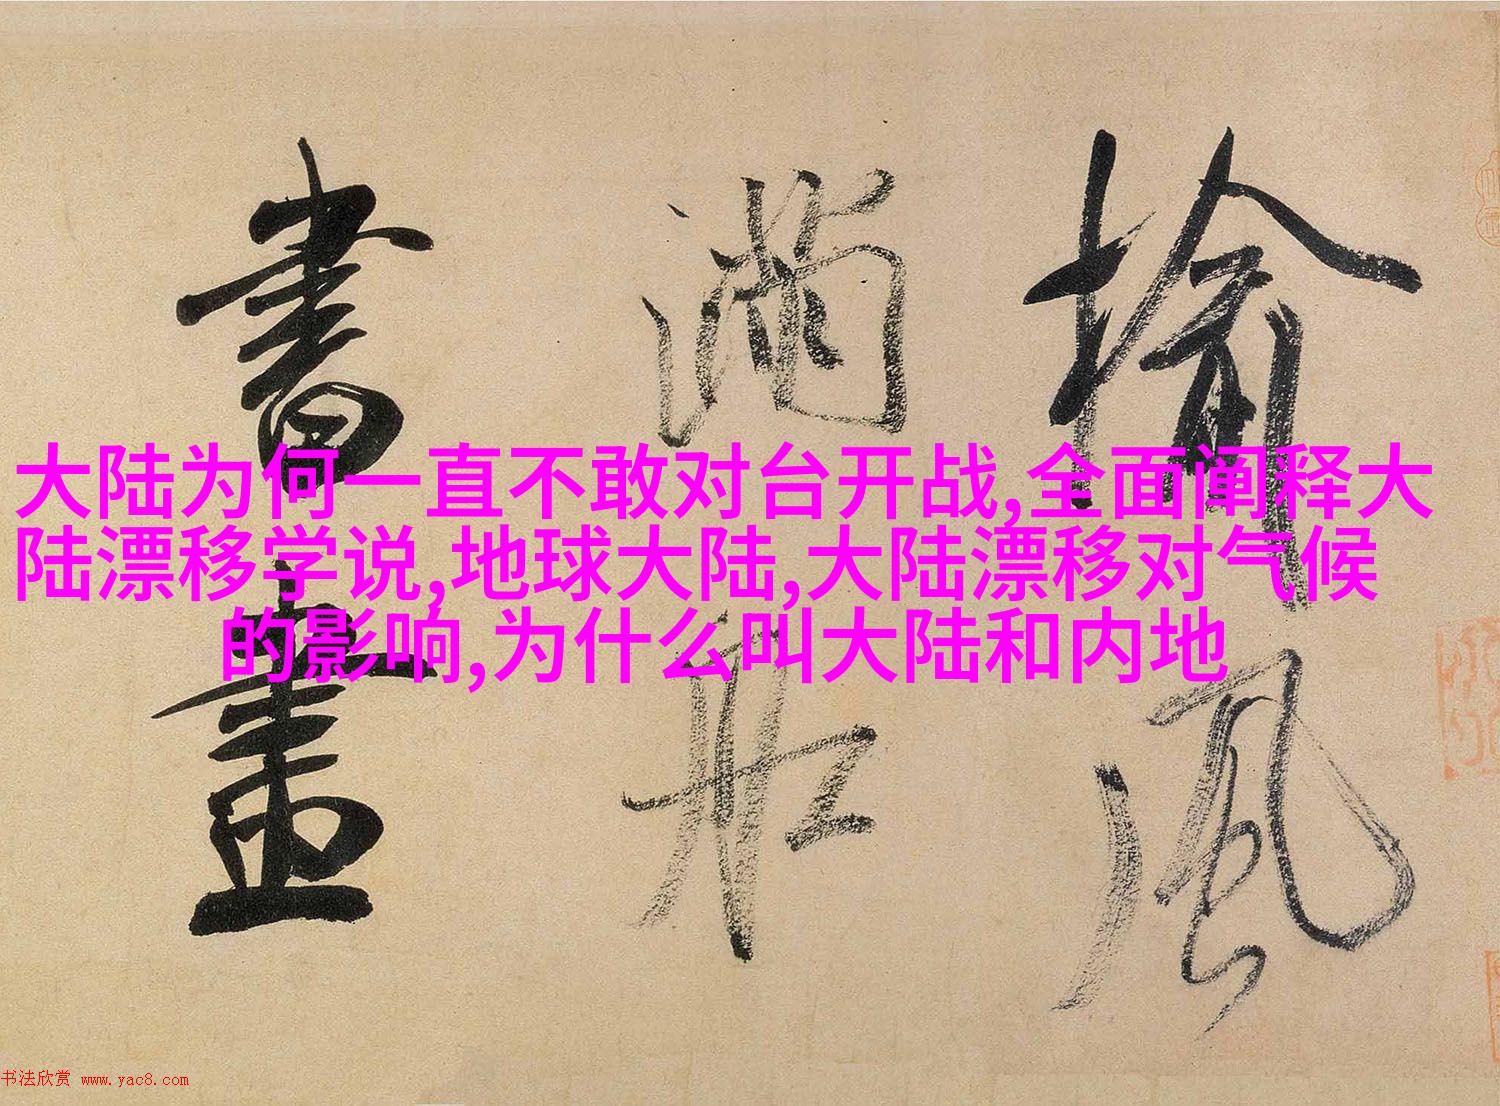 揄 满 書
风 船 畫
大陆为何一直不敢对台开战,全面阐释大
陆漂移学说,地球大陆,大陆漂移对气候
的影响,为什么叫大陆和内地
书法欣赏 www.yac8.com